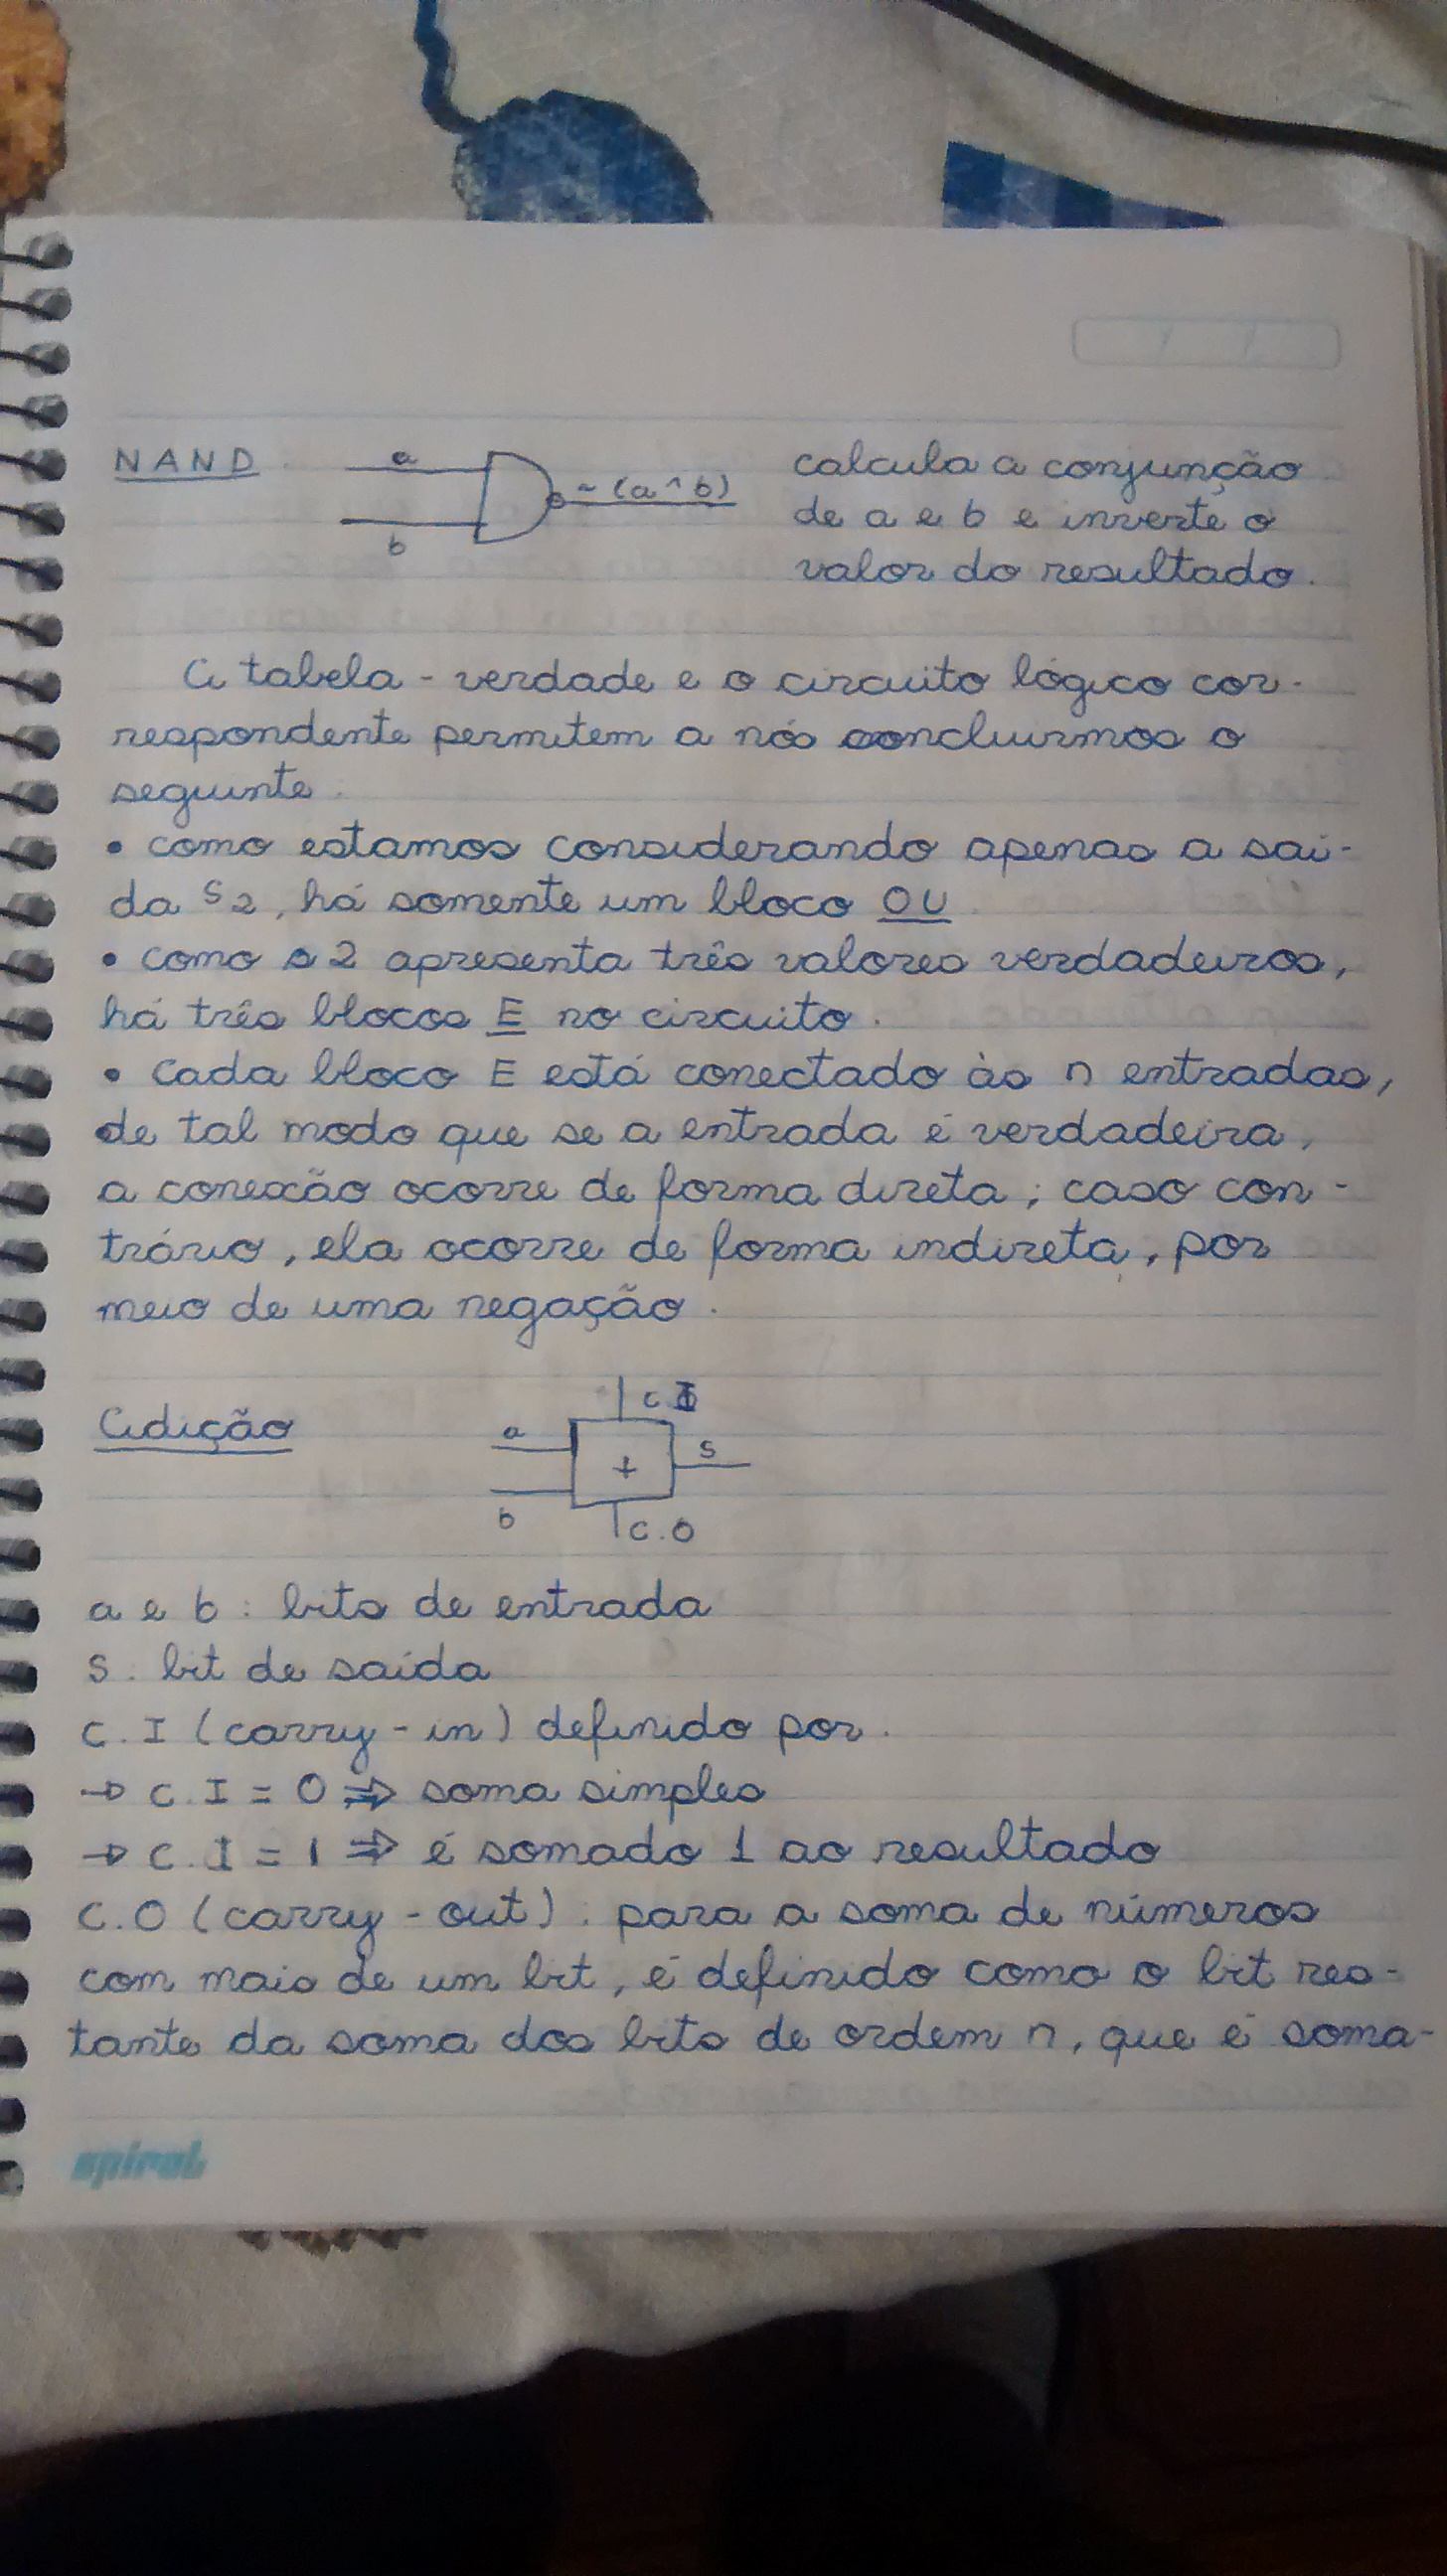 NAND a ~(a^b) calcula a conjunção
b de a e b e inverte o
valor do resultado.
A tabela-verdade e o circuito lógico cor-
respondente permitem a nós concluirmos o
seguinte:
• como estamos considerando apenas a saí-
da S2, há somente um bloco OU.
• como s2 apresenta três valores verdadeiros,
há três blocos E no circuito.
• cada bloco E está conectado às n entradas,
de tal modo que se a entrada é verdadeira,
a conexão ocorre de forma direta; caso con-
trário, ela ocorre de forma indireta, por
meio de uma negação.
C.I
Adição a + S
b C.O
a e b: bits de entrada
S: bit de saída
C.I (carry-in) definido por:
→ C.I = 0 ⇒ soma simples
→ C.I = 1 ⇒ é somado 1 ao resultado
C.O (carry-out): para a soma de números
com mais de um bit, é definido como o bit res-
tante da soma dos bits de ordem n, que é soma-
spiral